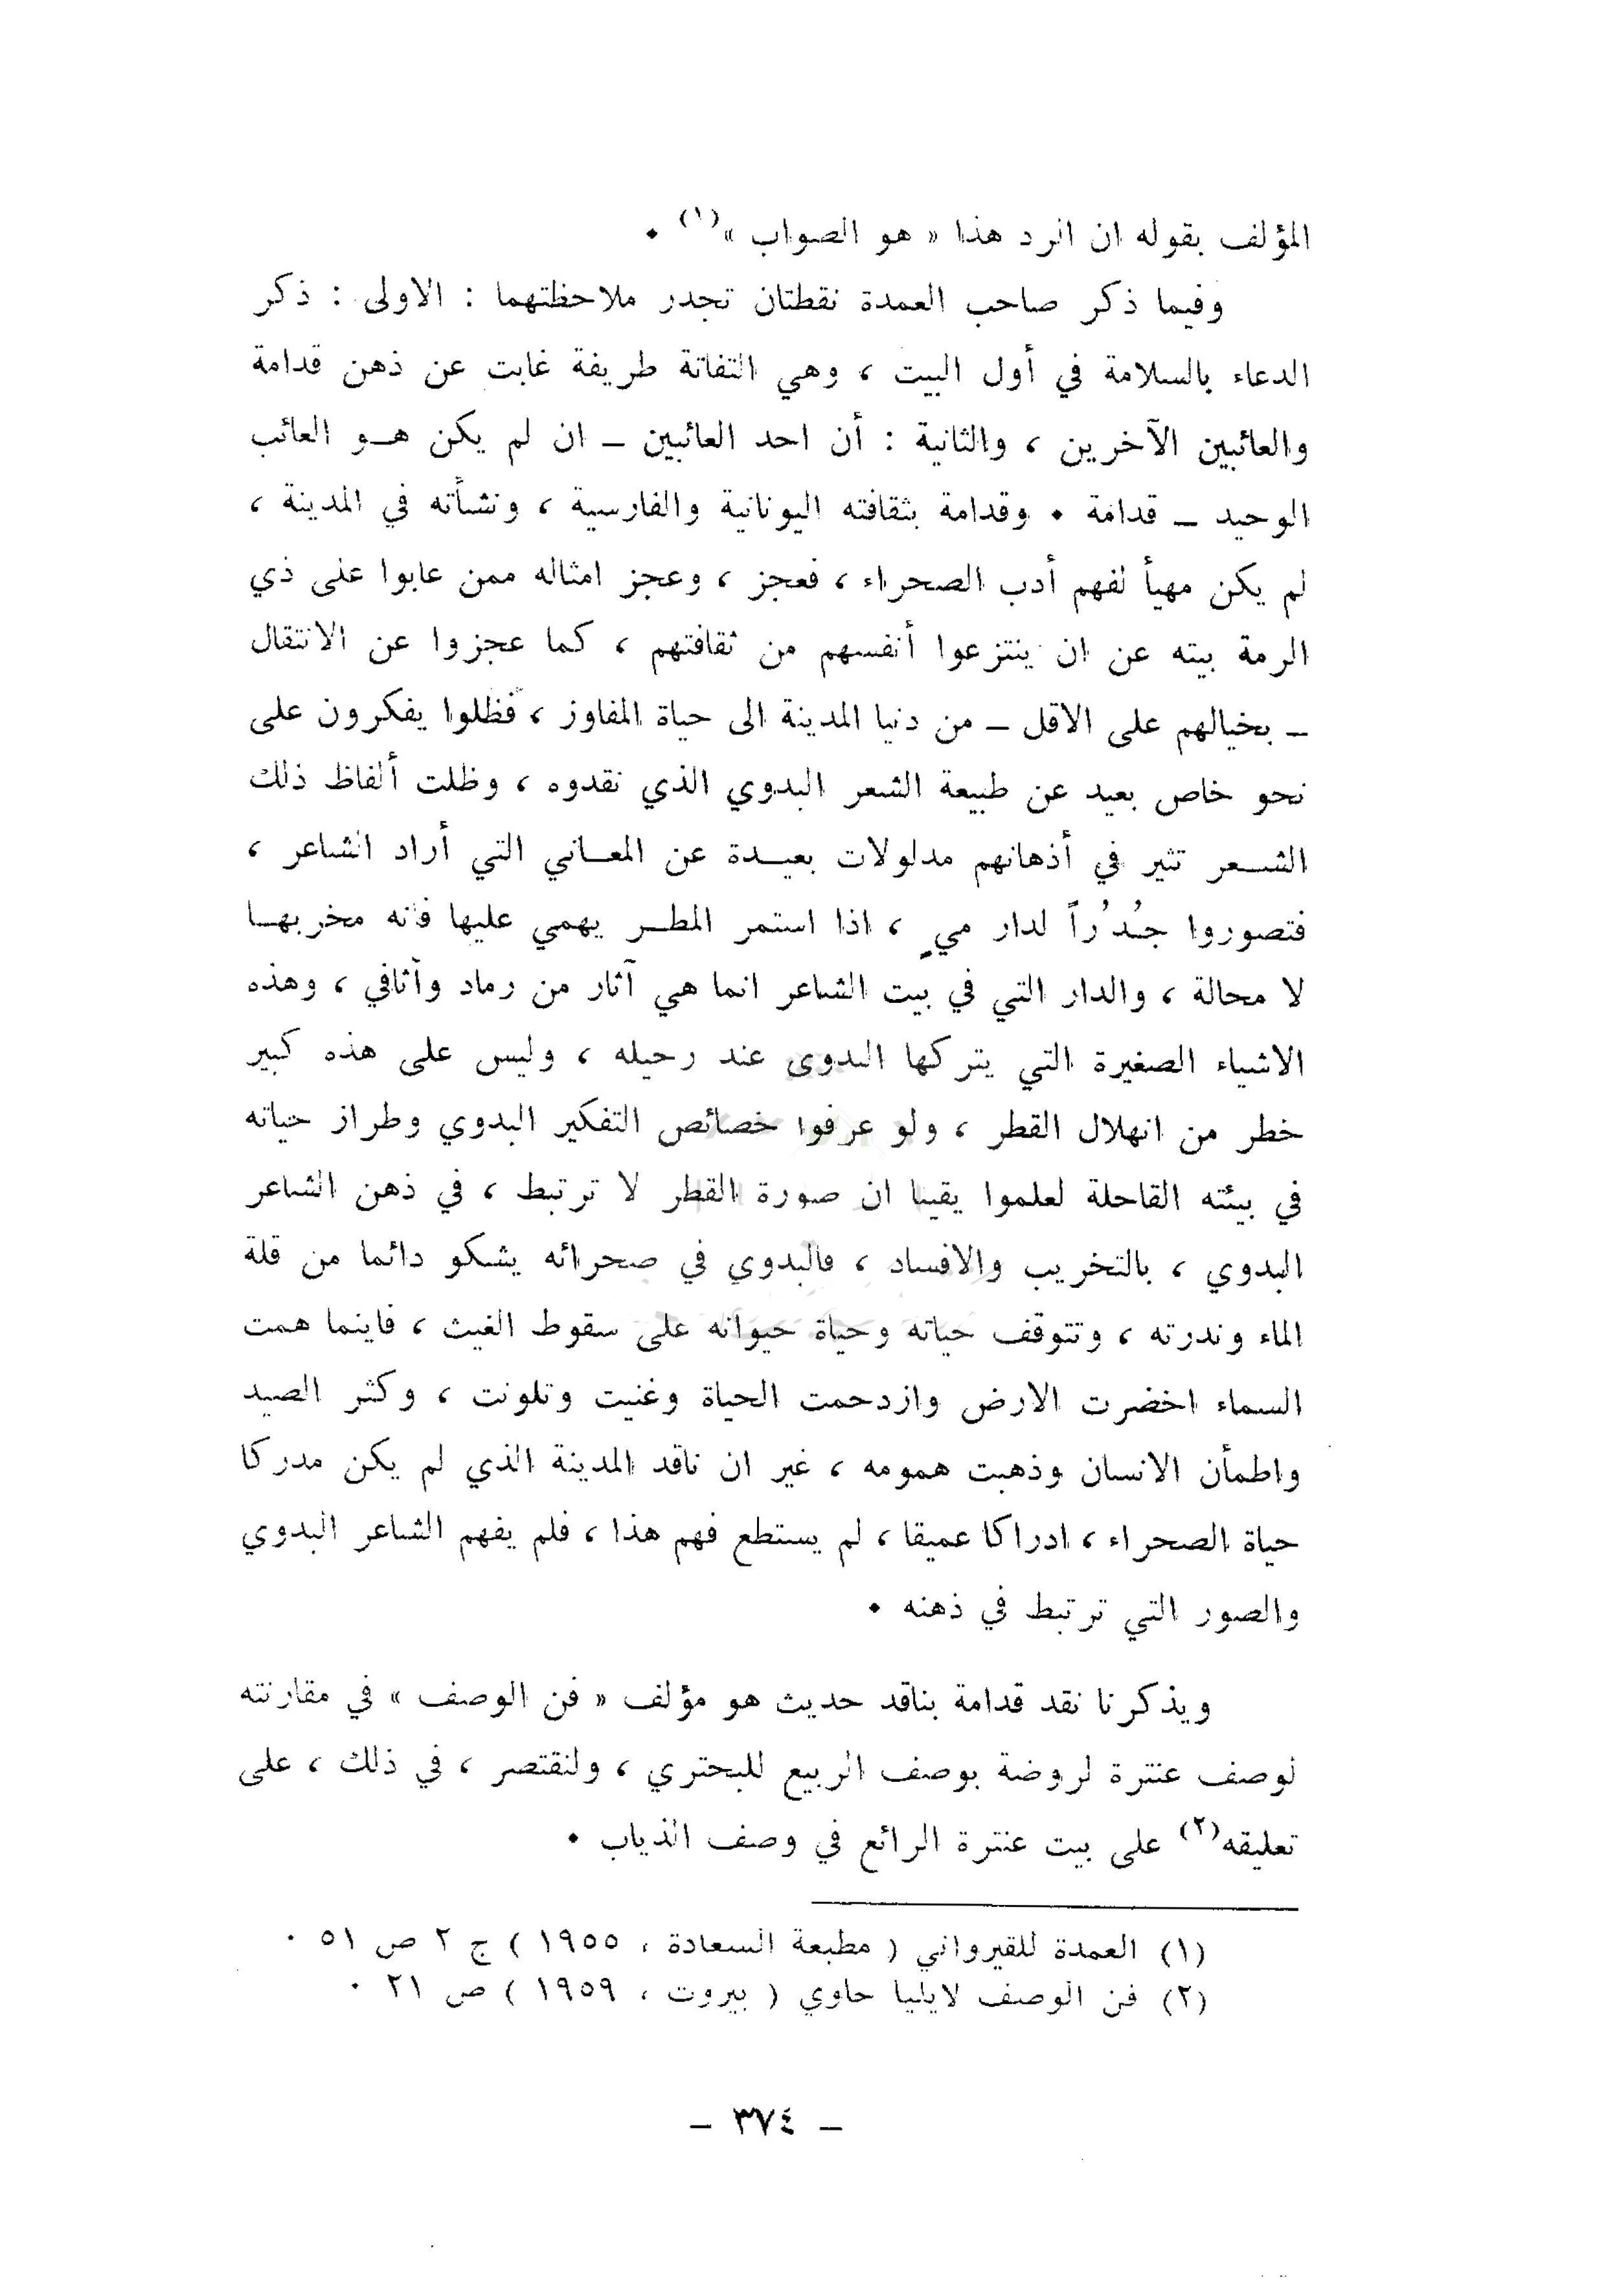 المؤلف بقوله ان الرد هذا « هو الصواب »(١) •
وفيما ذكر صاحب العمدة نقطتان تجدر ملاحظتهما : الاولى : ذكر
الدعاء بالسلامة في أول البيت ، وهي التفاتة طريفة غابت عن ذهن قدامة
والعائبين الآخرين ، والثانية : أن احد العائبين – ان لم يكن هو العائب
الوحيد – قدامة • وقدامة بثقافته اليونانية والفارسية ، ونشأته في المدينة ،
لم يكن مهيأ لفهم أدب الصحراء ، فعجز ، وعجز امثاله ممن عابوا على ذي
الرمة بيته عن ان ينتزعوا أنفسهم من ثقافتهم ، كما عجزوا عن الانتقال
– بخيالهم على الاقل – من دنيا المدينة الى حياة المفاوز ، فظلوا يفكرون على
نحو خاص بعيد عن طبيعة الشعر البدوي الذي نقدوه ، وظلت ألفاظ ذلك
الشعر تثير في أذهانهم مدلولات بعيدة عن المعاني التي أراد الشاعر ،
فتصوروا جُدُراً لدار ميٍ ، اذا استمر المطر يهمي عليها فانه مخربها
لا محالة ، والدار التي في بيت الشاعر انما هي آثار من رماد وأثافي ، وهذه
الاشياء الصغيرة التي يتركها البدوى عند رحيله ، وليس على هذه كبير
خطر من انهلال القطر ، ولو عرفوا خصائص التفكير البدوي وطراز حياته
في بيئته القاحلة لعلموا يقينا ان صورة القطر لا ترتبط ، في ذهن الشاعر
البدوي ، بالتخريب والافساد ، فالبدوي في صحرائه يشكو دائما من قلة
الماء وندرته ، وتتوقف حياته وحياة حيوانه على سقوط الغيث ، فاينما همت
السماء اخضرت الارض وازدحمت الحياة وغنيت وتلونت ، وكثر الصيد
واطمأن الانسان وذهبت همومه ، غير ان ناقد المدينة الذي لم يكن مدركا
حياة الصحراء ، ادراكا عميقا ، لم يستطع فهم هذا ، فلم يفهم الشاعر البدوي
والصور التي ترتبط في ذهنه •
ويذكرنا نقد قدامة بناقد حديث هو مؤلف « فن الوصف » في مقارنته
لوصف عنترة لروضة بوصف الربيع للبحتري ، ولنقتصر ، في ذلك ، على
تعليقه(٢) على بيت عنترة الرائع في وصف الذباب •
(١) العمدة للقيرواني ( مطبعة السعادة ، ١٩٥٥ ) ج ٢ ص ٥١ ٠
(٢) فن الوصف لايليا حاوي ( بيروت ، ١٩٥٩ ) ص ٢١ ٠
– ٣٧٤ –